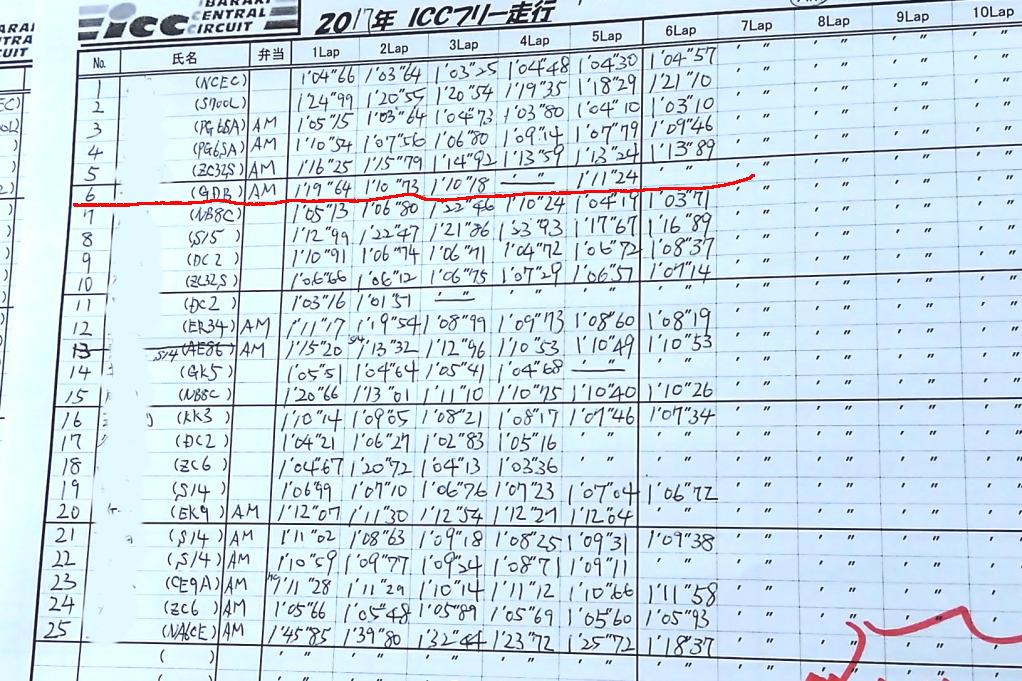 BARAKI
CENTRAL
CIRCUIT
icc
2017年 ICCフリー走行
No. 氏名 弁当 1Lap 2Lap 3Lap 4Lap 5Lap 6Lap 7Lap 8Lap 9Lap 10Lap
1 (NCEC) 1'04"66 1'03"64 1'03"25 1'04"48 1'04"30 1'04"57
2 (S700L) 1'24"99 1'20"55 1'20"54 1'19"35 1'18"29 1'21"10
3 (PG6SA) AM 1'05"15 1'03"64 1'04"73 1'03"80 1'04"10 1'03"10
4 (PG6SA) AM 1'10"54 1'07"56 1'06"80 1'09"14 1'07"79 1'09"46
5 (ZC32S) AM 1'16"25 1'15"79 1'14"92 1'13"59 1'13"24 1'13"89
6 (GDB) AM 1'19"64 1'10"73 1'10"18 1'11"24
7 (NB8C) 1'05"13 1'06"80 1'22"46 1'10"24 1'04"19 1'03"71
8 (S15) 1'12"99 1'22"47 1'21"86 1'17"67 1'16"89
9 (DC2) 1'10"91 1'06"74 1'06"71 1'04"72 1'06"72 1'08"37
10 (ZC32S) 1'06"66 1'06"12 1'06"75 1'07"29 1'06"57 1'07"14
11 (DC2) 1'03"16 1'01"51
12 (ER34) AM 1'11"17 1'19"54 1'08"99 1'09"73 1'08"60 1'08"19
13 S14 (AE86) AM 1'15"20 1'13"32 1'12"96 1'10"53 1'10"49 1'10"53
14 (GK5) 1'05"51 1'04"64 1'05"41 1'04"68
15 (NB8C) 1'20"66 1'13"01 1'11"10 1'10"75 1'10"40 1'10"26
16 (KK3) 1'10"14 1'09"05 1'08"21 1'08"17 1'07"46 1'07"34
17 (DC2) 1'04"21 1'06"27 1'02"83 1'05"16
18 (ZC6) 1'04"67 1'20"72 1'04"13 1'03"36
19 (S14) 1'06"99 1'07"10 1'06"76 1'07"23 1'07"04 1'06"72
20 (EK9) AM 1'12"07 1'11"30 1'12"54 1'12"27 1'12"04
21 (S14) AM 1'11"02 1'08"63 1'09"18 1'08"25 1'09"31 1'09"38
22 (S14) AM 1'10"59 1'09"77 1'09"34 1'08"71 1'09"11
23 (CE9A) AM 1'11"28 1'11"29 1'10"14 1'11"12 1'10"66 1'11"58
24 (ZC6) AM 1'05"66 1'05"48 1'05"89 1'05"69 1'05"60 1'05"93
25 (NA6CE) AM 1'45"85 1'39"80 1'32"44 1'23"72 1'25"72 1'18"37